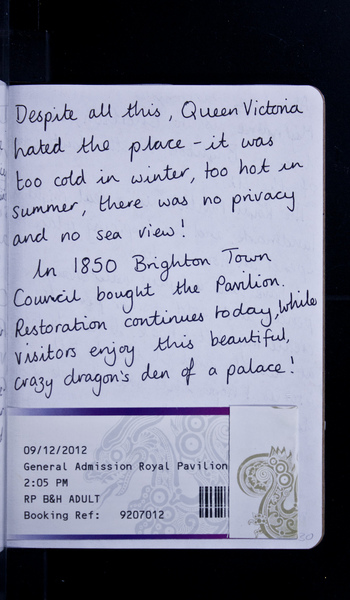 Despite all this, Queen Victoria
hated the place – it was
too cold in winter, too hot in
summer, there was no privacy
and no sea view!
In 1850 Brighton Town
Council bought the Pavilion.
Restoration continues today, while
visitors enjoy this beautiful,
crazy dragon's den of a palace!
09/12/2012
General Admission Royal Pavilion
2:05 PM
RP B&H ADULT
Booking Ref: 9207012